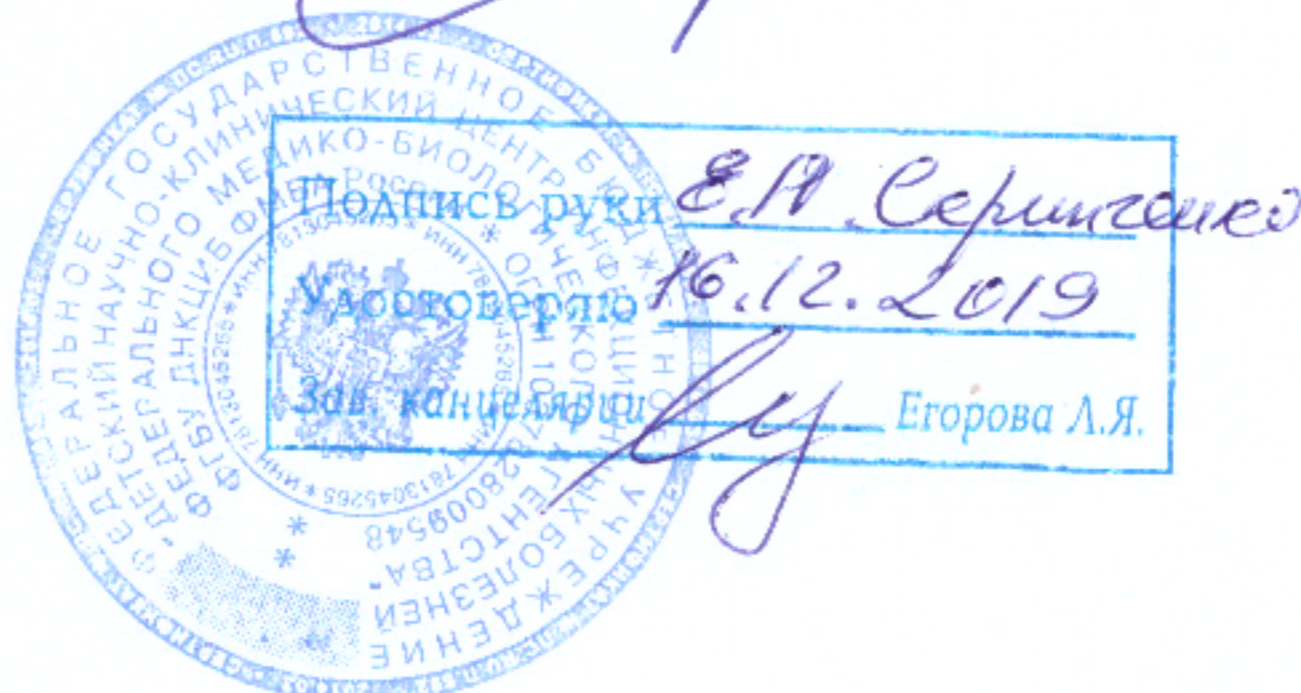 ФЕДЕРАЛЬНОЕ ГОСУДАРСТВЕННОЕ БЮДЖЕТНОЕ УЧРЕЖДЕНИЕ
"ДЕТСКИЙ НАУЧНО-КЛИНИЧЕСКИЙ ЦЕНТР ИНФЕКЦИОННЫХ БОЛЕЗНЕЙ
ФЕДЕРАЛЬНОГО МЕДИКО-БИОЛОГИЧЕСКОГО АГЕНТСТВА"
ФГБУ ДНКЦИБ ФМБА России * ОГРН 1027802
* ИНН 7813045265 * ИНН 7813045265
Подпись руки Е.А.
Удостоверяю 16.12.2019
Зав. канцелярии Егорова Л.Я.